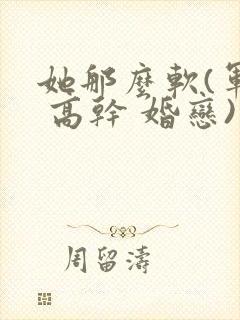 她那麼軟(軍
高幹 婚戀)
周留濤